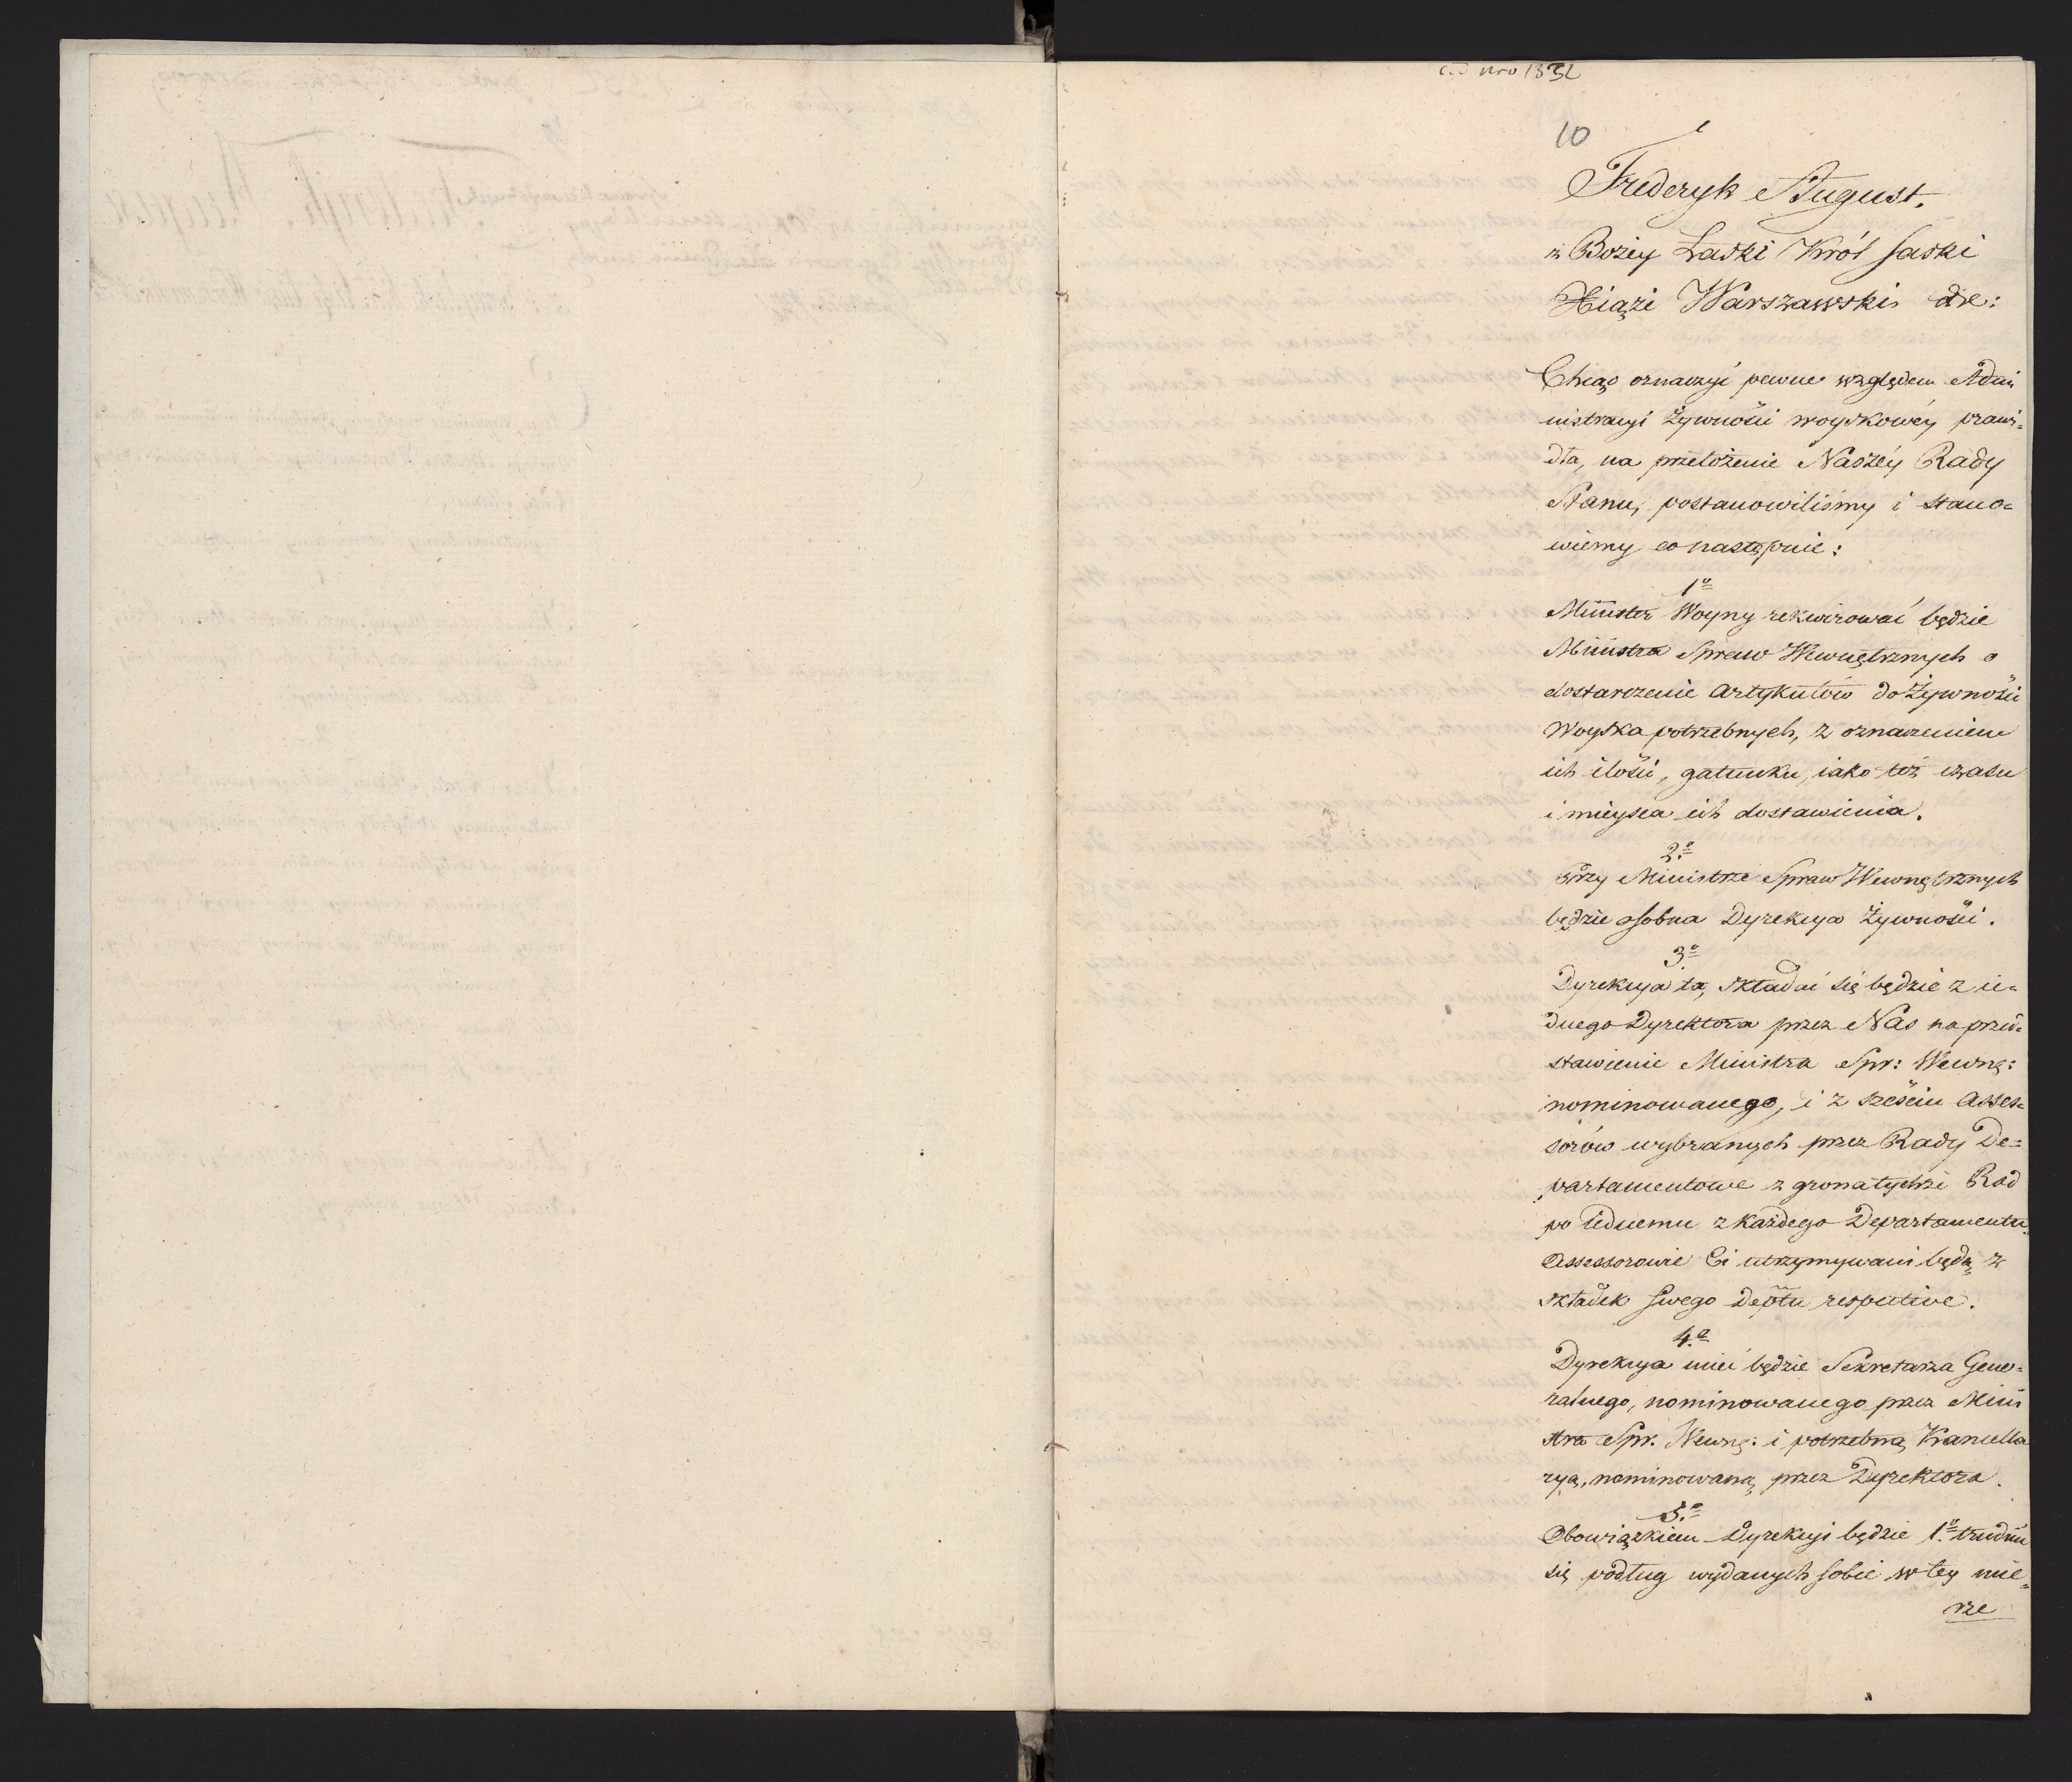 ad Nro 1332
10
Frederyk August.
z Bożey Łaski Król Saski
Xiąże Warszawski &c:
Chcąc oznaczyć pewne względem Admi
nistracyi Żywności woyskowéy prawi=
dła, na przełożenie Naszéy Rady
Stanu, postanowiliśmy i stano=
wiemy co następuie:
1o
Minister Woyny rekwirować będzie
Ministra Spraw Wewnętrznych o
dostarczenie artykułów do Żywności
Woyska potrzebnych, z oznaczeniem
ich ilości, gatunku, iako też czasu
i mieysca ich dostawienia.
2o
Przy Ministrze Spraw Wewnętrznych
będzie osobna Dyrekcya Żywności.
3o
Dyrekcya ta, składać się będzie z ie=
dnego Dyrektora przez Nas na przed=
stawienie Ministra Spr: Wewnę:
nominowanego, i z sześciu Asses=
sorów wybranych przez Rady De=
partamentowe z grona tychże Rad
po iednemu z każdego Departamentu.
Assessorowie Ci utrzymywani będą z
składek swego Deptu respective.
4o
Dyrekcya mieć będzie Sekretarza Gene=
ralnego, nominowanego przez Mini
stra Spr. Wewnę: i potrzebną Kancella
ryą, nominowaną przez Dyrektora.
5o
Obowiązkiem Dyrekcyi będzie 1o trudnić
się podług wydanych sobie w tey mie=
rze